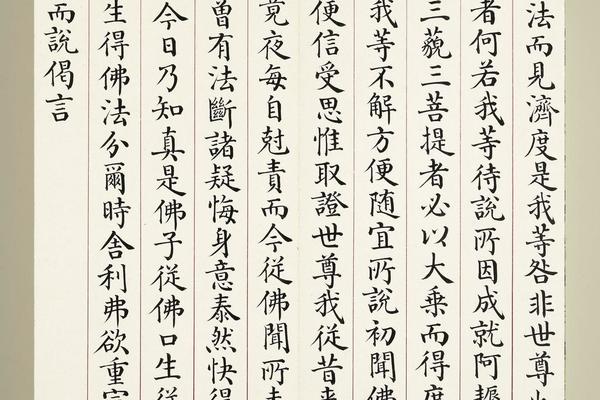 法而見濟度是我等咎非世尊
者何若我等待說所因成就阿耨
三藐三菩提者必以大乘而得度
我等不解方便随宜所說初聞佛
便信受思惟取證世尊我從昔來
竟夜每自尅責而今從佛聞所未
曾有法斷諸疑悔身意泰然快得
今日乃知真是佛子從佛口生從
生得佛法分爾時舍利弗欲重宣
而說偈言